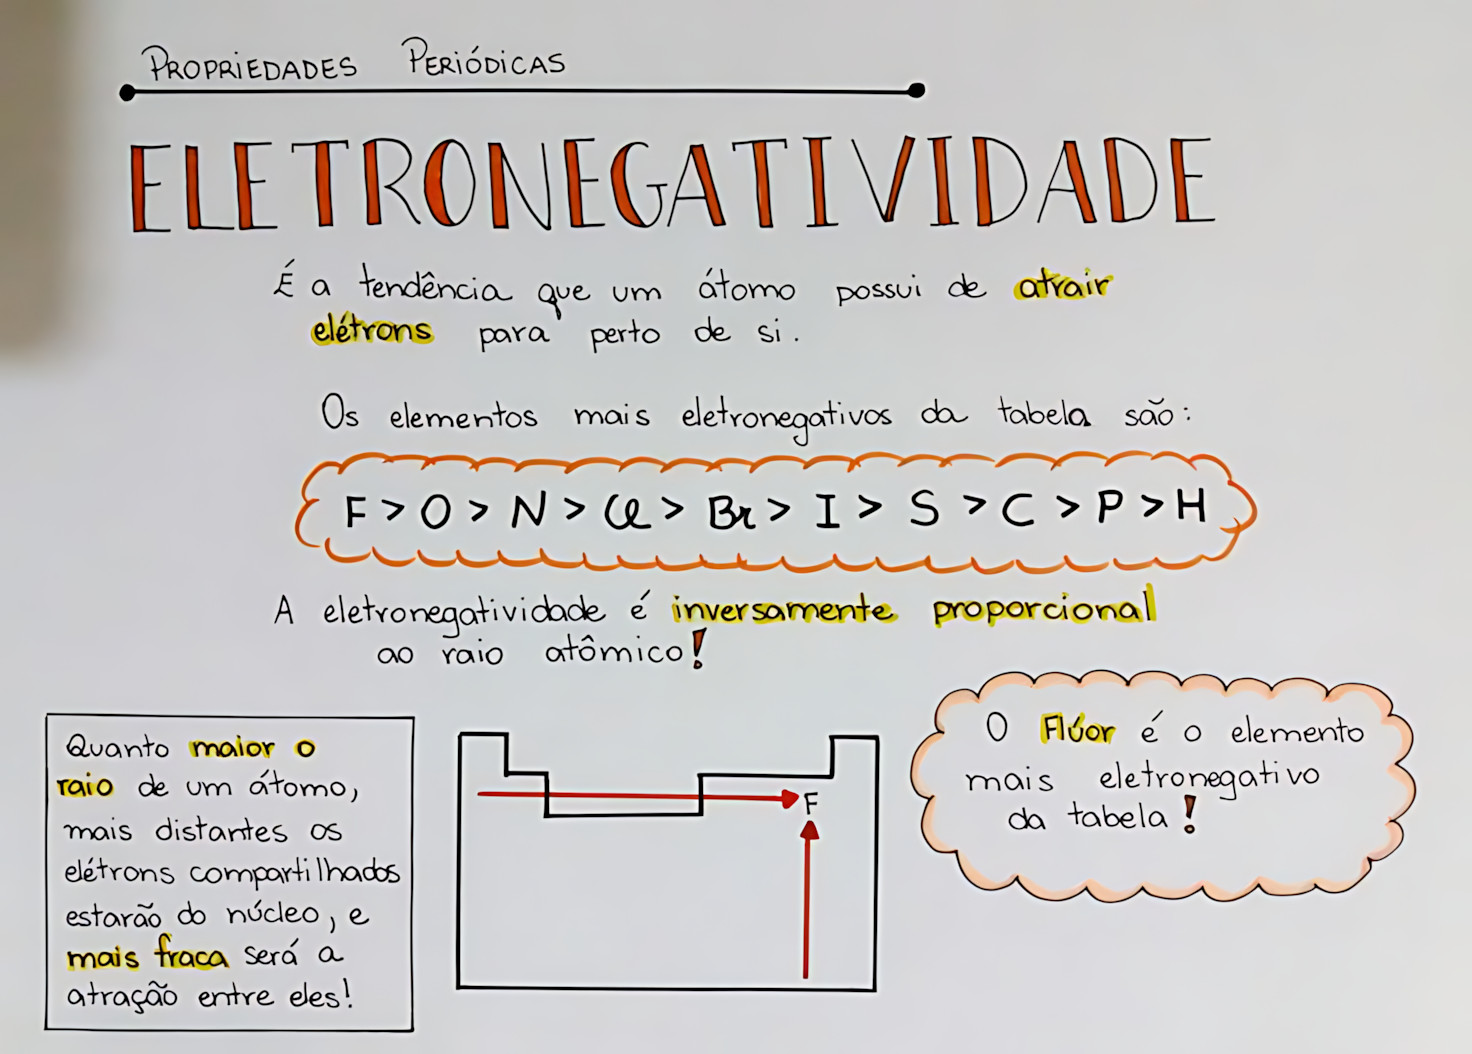 PROPRIEDADES PERIÓDICAS
ELETRONEGATIVIDADE
É a tendência que um átomo possui de atrair
elétrons para perto de si.
Os elementos mais eletronegativos da tabela são:
F > O > N > Cl > Br > I > S > C > P > H
A eletronegatividade é inversamente proporcional
ao raio atômico!
Quanto maior o
raio de um átomo,
mais distantes os
elétrons compartilhados
estarão do núcleo, e
mais fraca será a
atração entre eles!
F
O Flúor é o elemento
mais eletronegativo
da tabela!